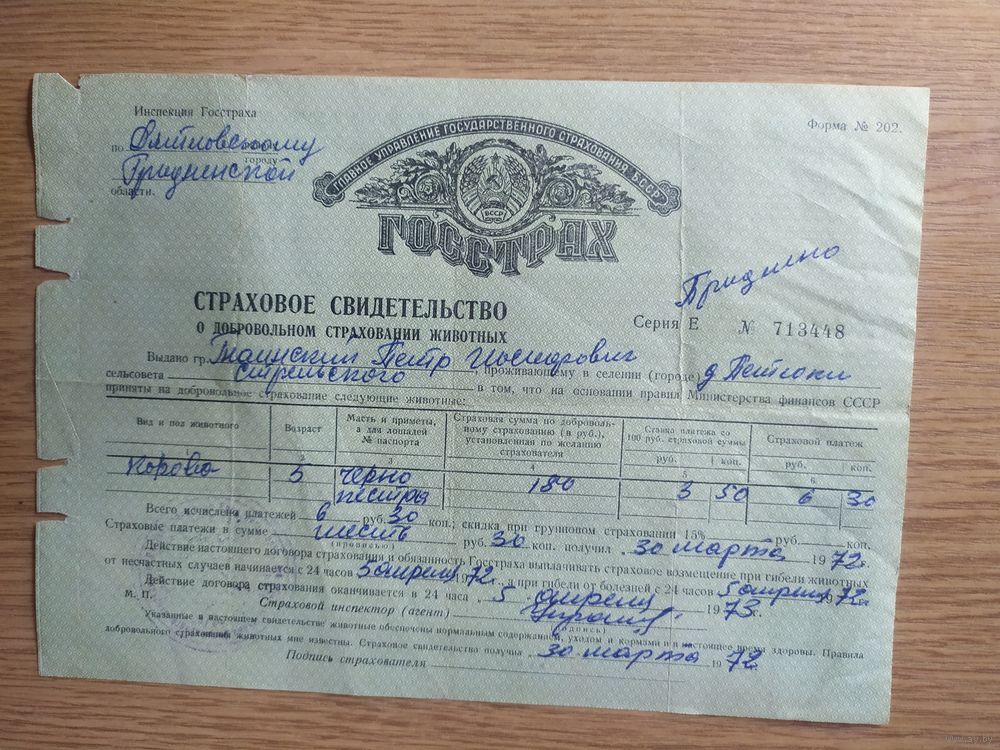 Инспекция Госстраха
Форма № 202.
по Дятловскому
городу
Гродненской
области.
ГЛАВНОЕ УПРАВЛЕНИЕ ГОСУДАРСТВЕННОГО СТРАХОВАНИЯ БССР
БССР
ГОССТРАХ
СТРАХОВОЕ СВИДЕТЕЛЬСТВО
О ДОБРОВОЛЬНОМ СТРАХОВАНИИ ЖИВОТНЫХ
Серия Е № 713448
Выдано гр. Петр, проживающему в селении (городе) д
сельсовета в том, что на основании правил Министерства финансов СССР
приняты на добровольное страхование следующие животные:
Вид и пол животного
Возраст
Масть и приметы, а для лошадей № паспорта
Страховая сумма по добровольному страхованию (в руб.), установленная по желанию страхователя
Ставка платежа со 100 руб. страховой суммы
руб. коп.
Страховой платеж
руб. коп.
2 3 4 5 6
корова 5 черно пестрая 180 3 50 6 30
Всего исчислена платежей 6 руб. 30 коп.; скидка при групповом страховании 15% руб. коп.
Страховые платежи в сумме шесть руб. 30 коп. получил 30 марта 1972 г.
(прописью)
Действие настоящего договора страхования и обязанность Госстраха выплачивать страховое возмещение при гибели животных
от несчастных случаев начинается с 24 часов 5 апреля 1972 г., а при гибели от болезней с 24 часов 5 апреля 1972 г.
Действие договора страхования оканчивается в 24 часа 5 апреля 1973 г.
М. П. Страховой инспектор (агент)
(подпись)
Указанные в настоящем свидетельстве животные обеспечены нормальным содержанием, уходом и кормами и в настоящее время здоровы. Правила
добровольного страхования животных мне известны. Страховое свидетельство получил 30 марта 1972
Подпись страхователя